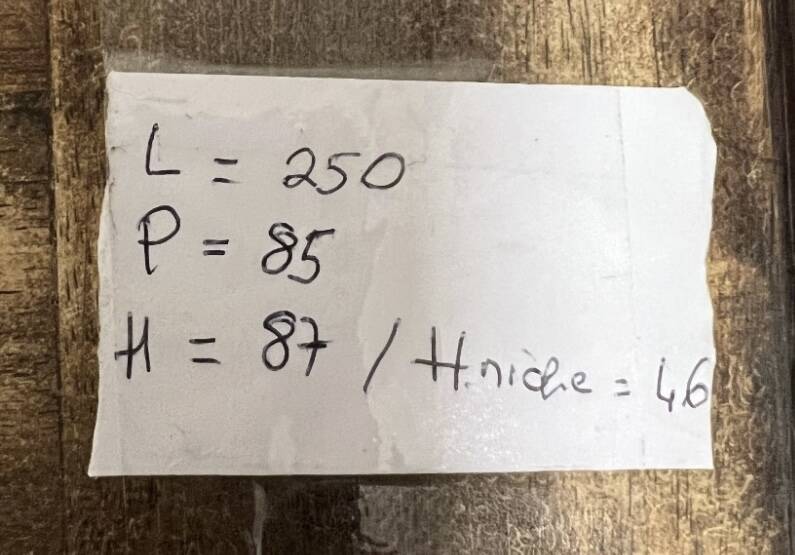 L = 250
P = 85
H = 87 / H.niche = 46